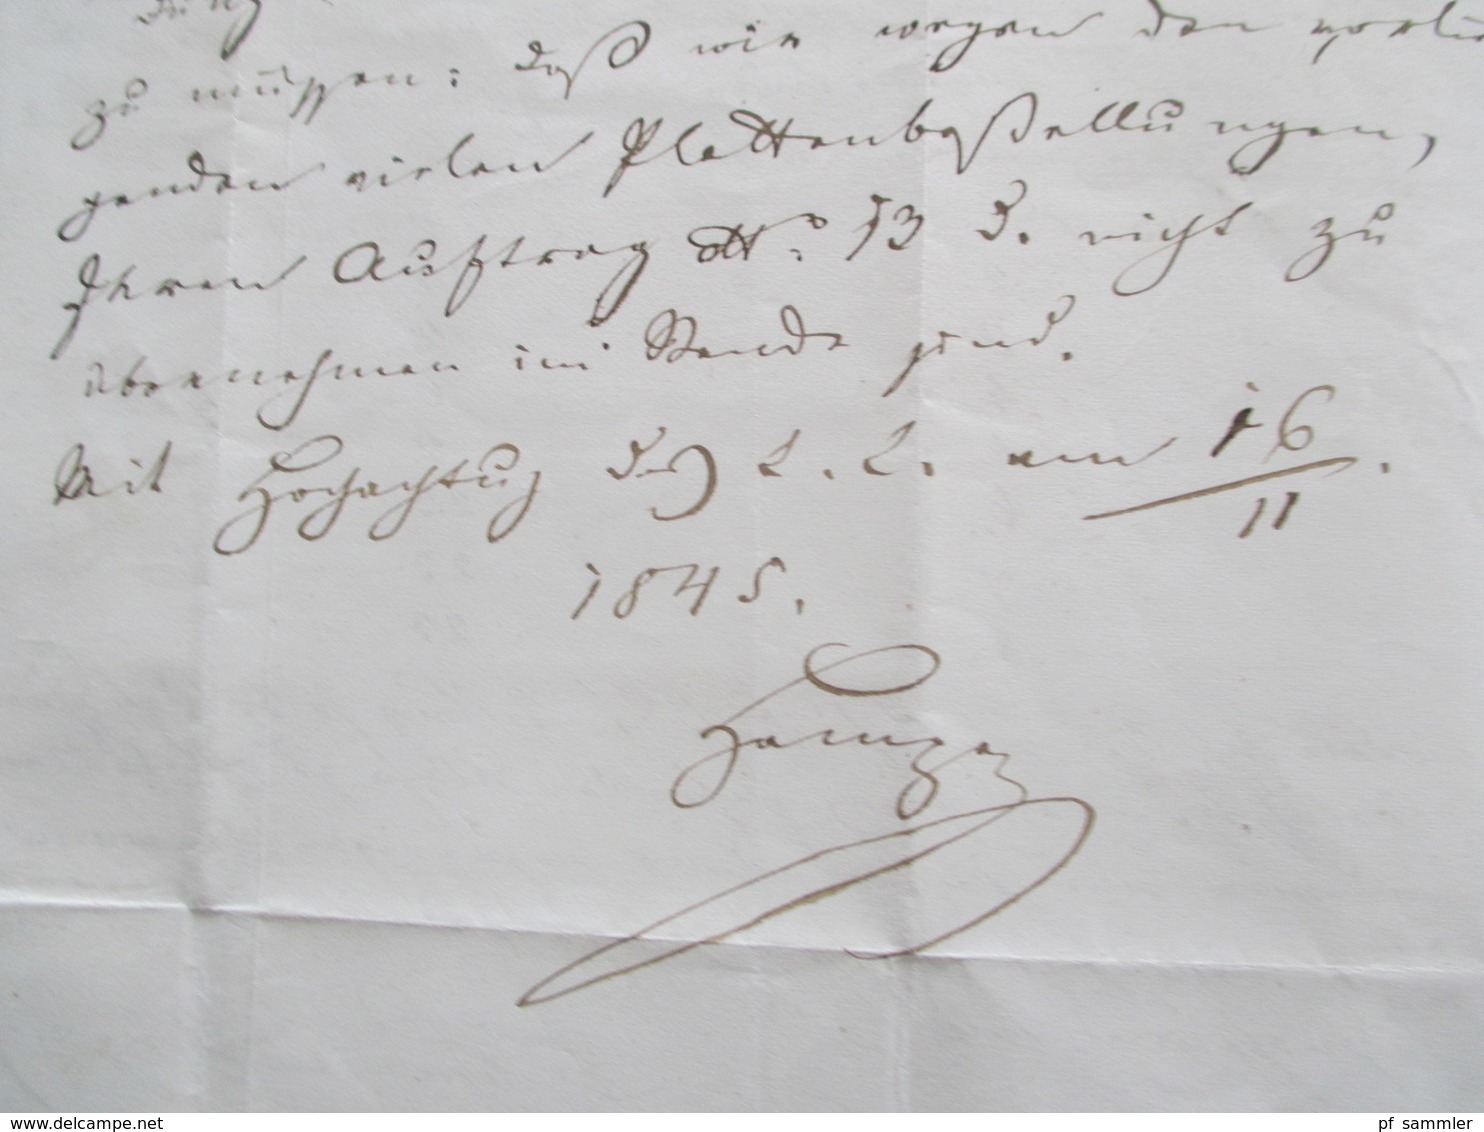 zu müssen: daß wir wegen den vorlie
genden vielen Plattenbestellungen,
Ihren Auftrag dtt: 13 d. nicht zu
übernehmen im Stande sind.
Mit Hochachtung am 16
11
1845.
www.delcampe.net
pf_sammler